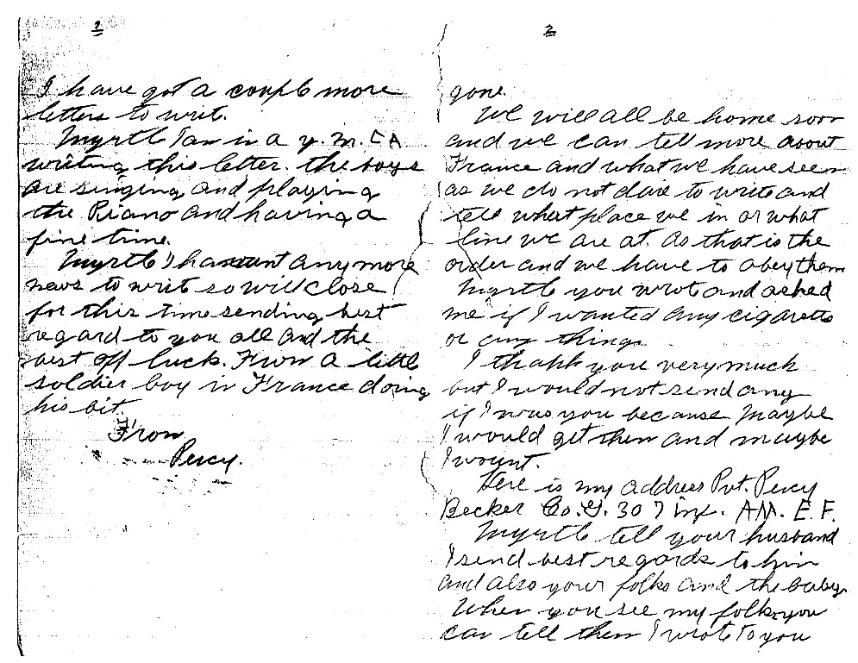 2
I have got a couple more
letters to write.
Myrtle I am in a Y. M. C A
writing this letter. the boys
are singing and playing
the Piano and having a
fine time.
Myrtle I havent any more
news to write so will close
for this time sending best
regard to you all and the
best off luck. From a little
soldier boy in France doing
his bit.
From
Percy.
2
gone.
We will all be home soon
and we can tell more about
France and what we have seen
as we do not dare to write and
tell what place we in or what
line we are at. as that is the
order and we have to obey them
Myrtle you wrote and asked
me if I wanted any cigaretts
or any things
I thank you very much
but I would not send any
if I was you because maybe
I would get them and maybe
I wount.
Here is my address Pvt. Percy
Becker Co. G. 307 inf. AM. E. F.
Myrtle tell your husband
I send best regards to him
and also your folks and the baby.
When you see my folks you
can tell them I wrote to you